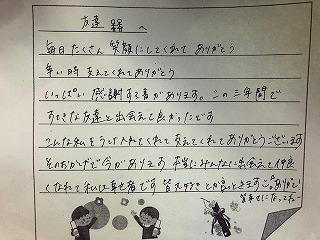 友達 へ
毎日たくさん 笑顔にしてくれて ありがとう
辛い時 支えてくれてありがとう
いっぱい 感謝する事があります。この三年間で
すてきな友達と出会えて良かったです
こんな私をうけ入れてくれて支えてくれてありがとうございます
そのおかげで今があります 本当にみんなに出会えて仲良
くなれて私は幸せ者です 皆大好き ありがとう
皆幸せになってねー